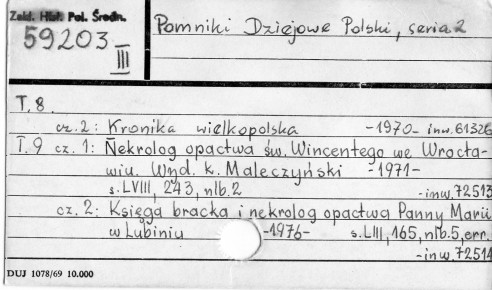 Zakł. Hist. Pol. Średn.
59203
III
Pomniki Dziejowe Polski, seria 2
T. 8.
cz. 2: Kronika wielkopolska -1970- inw. 61326
T. 9 cz. 1: Nekrolog opactwa św. Wincentego we Wrocła-
wiu. Wyd. K. Maleczyński -1971-
s. LVIII, 243, nlb. 2 -inw. 72513
cz. 2: Księga bracka i nekrolog opactwa Panny Marii
w Lubiniu -1976- s. LII, 165, nlb. 5, err.
-inw. 72514
DUJ 1078/69 10.000